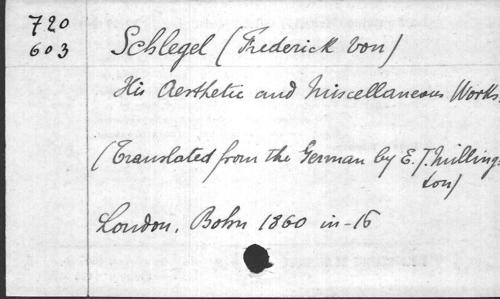 720
603
Schlegel (Frederick von)
His Aesthetic and Miscellaneous Works.
(Translated from the German by E. J. Milling-
ton)
London. Bohn 1860 in-16